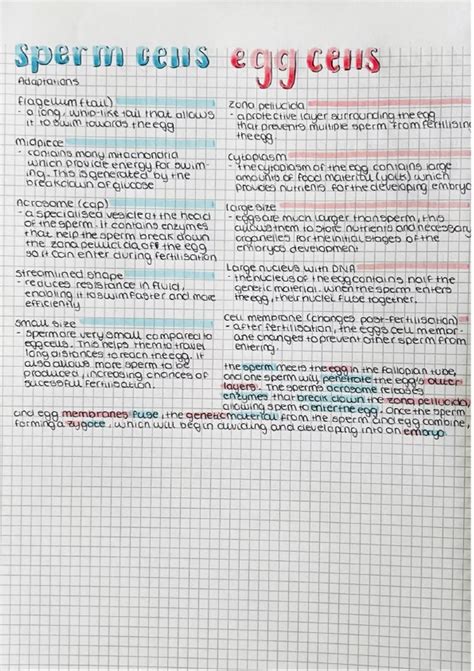 sperm cells
Adaptations
Flagellum (tail)
- a long, whip-like tail that allows
it to swim towards the egg
midpiece
- contains many mitochondria
which provide energy for swim-
ing. This is generated by the
breakdown of glucose
Acrosome (cap)
- a specialised vesicle at the head
of the sperm. It contains enzymes
that help the sperm break down
the zona pellucida of the egg
so it can enter during fertilisation
streamlined shape
- reduces resistance in fluid,
enabling it to swim faster and more
efficiently
small size
- sperm are very small compared to
egg cells. This helps them to travel
long distances to reach the egg. It
also allows more sperm to be
produced, increasing chances of
sucessful fertilisation.
egg cells
zona pellucida
- a protective layer surrounding the egg
that prevents multiple sperm from fertilising
the egg.
cytoplasm
- the cytoplasm of the egg contains large
amounts of food material (yolk) which
provides nutrients for the developing embryo
large size
- eggs are much larger than sperm, this
allows them to store nutrients and necessary
organelles for the initial stages of the
embryo's development
Large nucleus with DNA
- the nucleus of the egg contains half the
genetic material. When the sperm enters
the egg, their nuclei fuse together.
cell membrane (changes post-fertilisation)
- after fertilisation, the egg's cell membr-
ane changes to prevent other sperm from
entering.
the sperm meets the egg in the fallopian tube,
and one sperm will penetrate the egg's outer
layers. The sperm's acrosome releases
enzymes that break down the zona pellucida,
allowing sperm to enter the egg. Once the sperm
and egg membranes fuse, the genetic material from the sperm and egg combine,
forming a zygote, which will begin dividing and developing into an embryo.